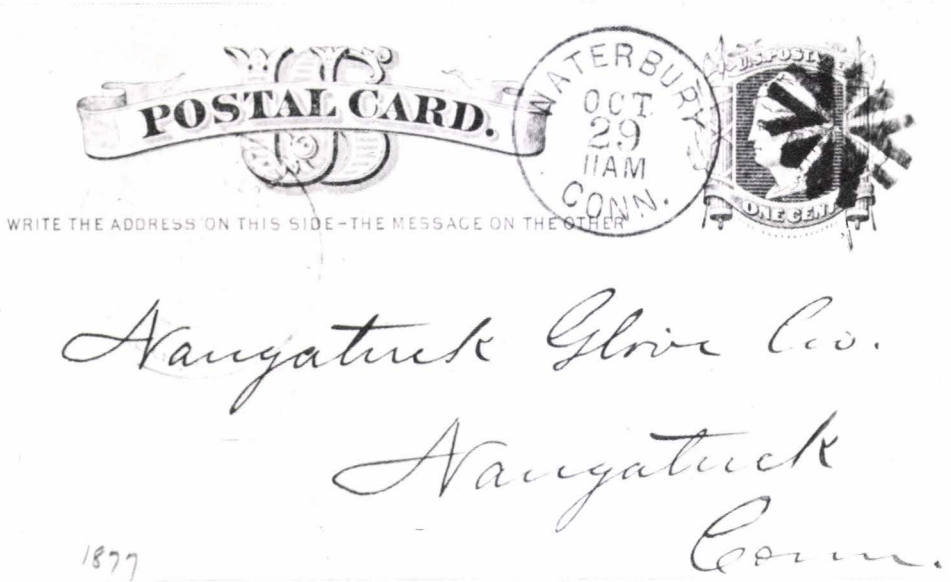 US
POSTAL CARD.
WATERBURY
OCT
29
11AM
CONN.
U.S. POSTAGE
ONE CENT
WRITE THE ADDRESS ON THIS SIDE-THE MESSAGE ON THE OTHER
Naugatuck Glove Co.
Naugatuck
Conn.
1877